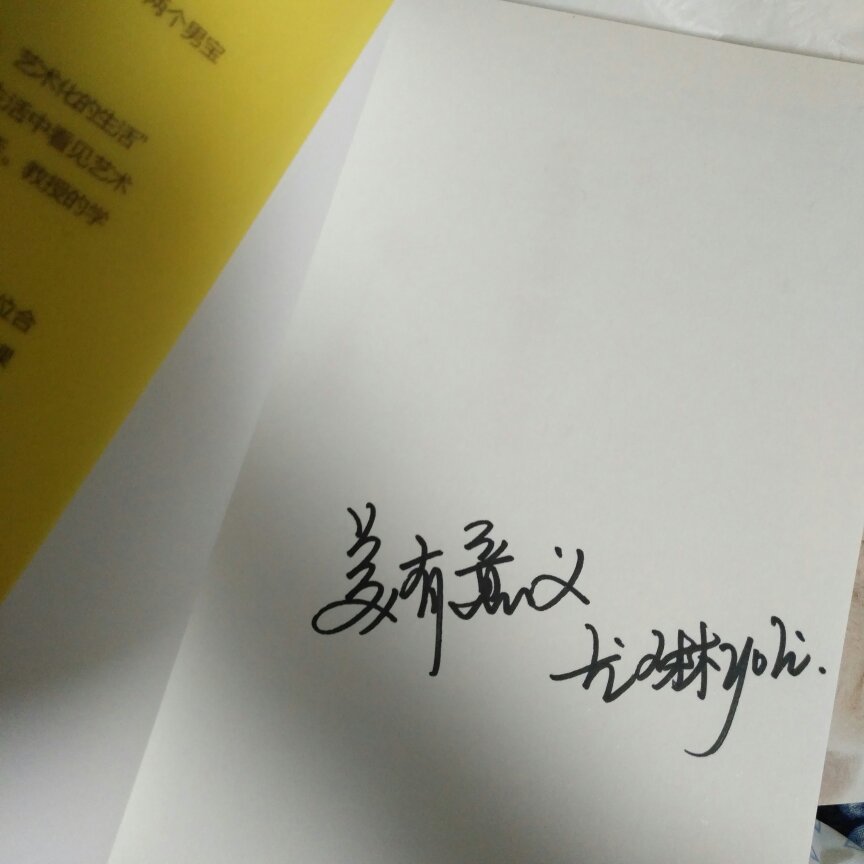 两个男宝
艺术化的生活”
活中看见艺术
教授的学
位合
课
美有意义
尤琳yoli.